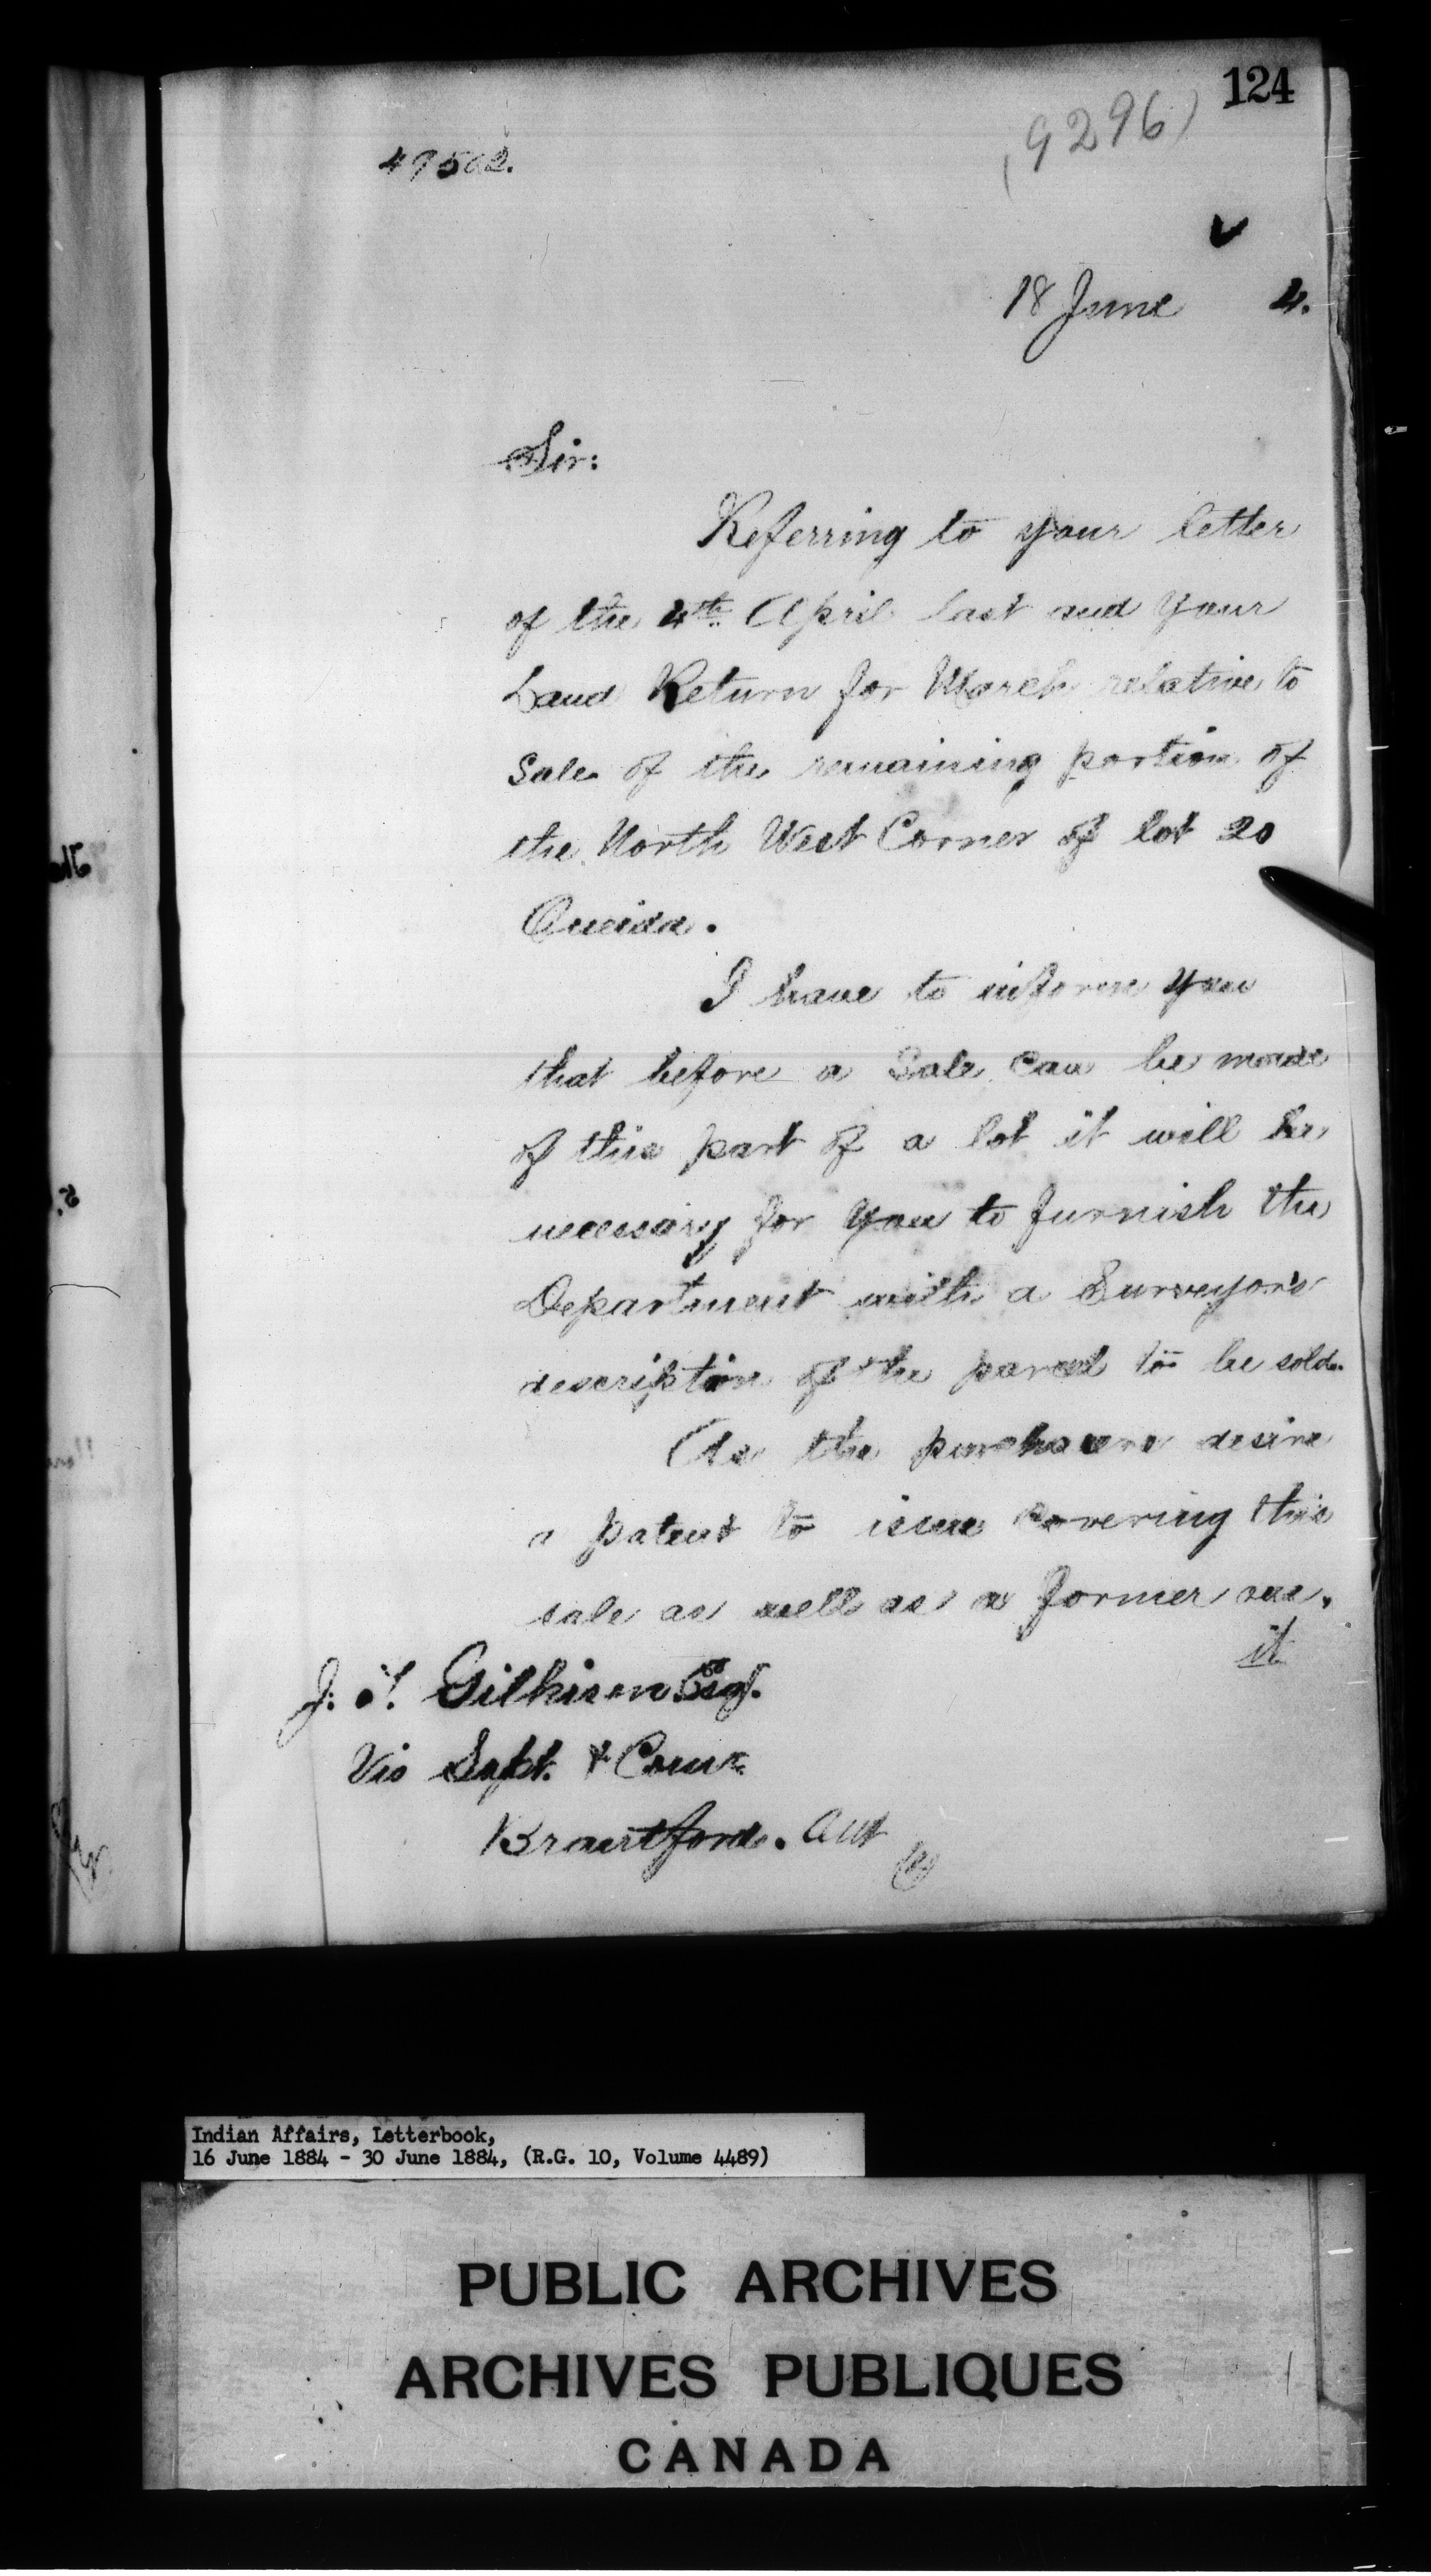 124
(9296)
49502.
18 June 4.
Sir:
Referring to your letter
of the 4th April last and your
Land Return for March relative to
Sale of the remaining portion of
the North West Corner of lot 20
Oneida.
I have to inform you
that before a Sale can be made
of this part of a lot it will be
necessary for you to furnish the
Department with a Surveyor's
description of the parcel to be sold.
As the purchasers desire
a patent to issue covering this
sale as well as a former one.
it
J. T. Gilkison Esq.
Vis Supt. & Comr.
Brantford. Ont
Indian Affairs, Letterbook,
16 June 1884 - 30 June 1884, (R.G. 10, Volume 4489)
PUBLIC ARCHIVES
ARCHIVES PUBLIQUES
CANADA